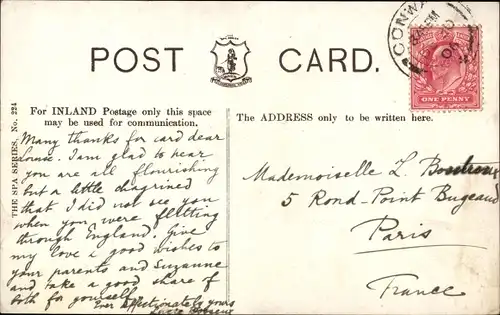 POST CARD.
CONWAY
ONE PENNY
THE SPA SERIES. No. 224
For INLAND Postage only this space
may be used for communication.
The ADDRESS only to be written here.
Many thanks for card dear
Louise. I am glad to hear
you are all flourishing
but a little chagrined
that I did not see you
when you were flitting
through England. Give
my love & good wishes to
your parents and Suzanne
and take a good share of
both for yourself.
Ever affectionately yours
Mademoiselle L.
5 Rond-Point Bugeaud
Paris
France